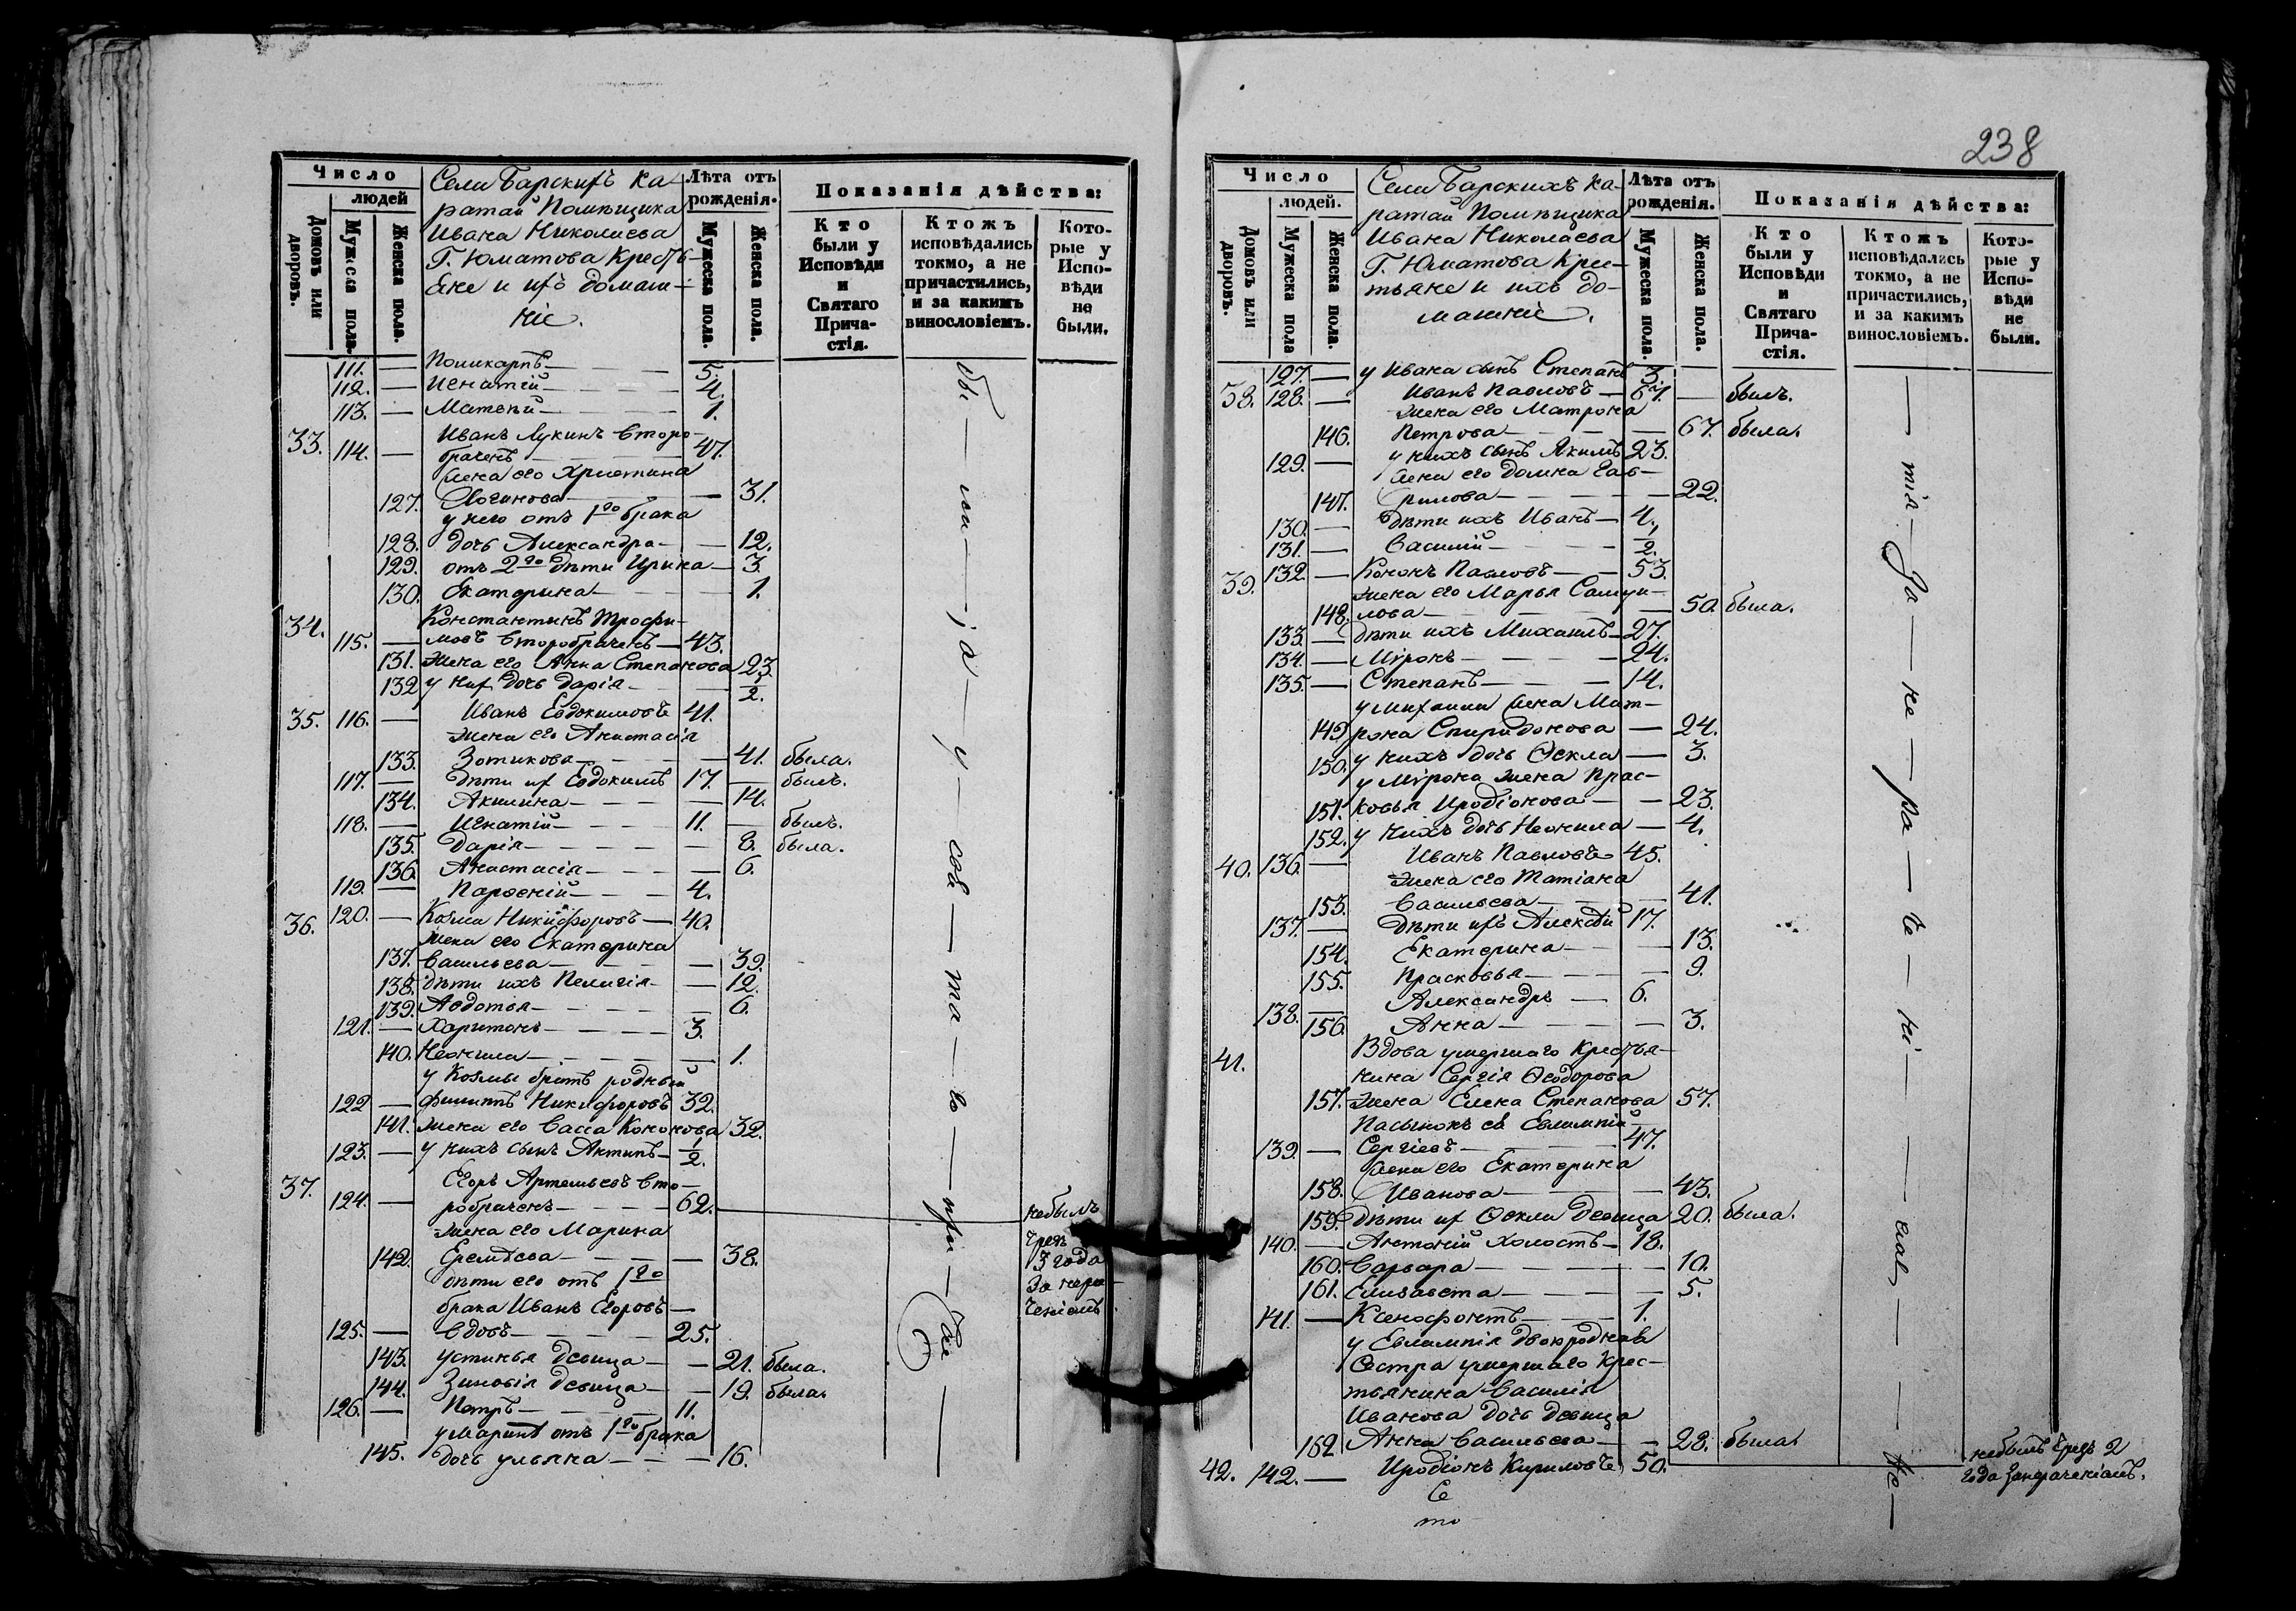 Число
людей
Домовъ или дворовъ.
Мужеска пола.
Женска пола.
Села Барскихъ Ка-
ратай Помѣщика
Ивана Николаева
Г. Юматова Кресть-
яне и ихъ домаш-
ніе.
Лѣта отъ рожденія.
Мужеска пола.
Женска пола.
Показанія дѣйства:
Кто были у Исповѣди и Святаго Прича-стія.
Ктожъ исповѣдались токмо, а не причастились, и за какимъ винословіемъ.
Кото-рые у Испо-вѣди не были.
111. — Поликарпъ — 5.
112. — Игнатій — 4.
113. — Матвѣй — 1.
33. Иванъ Лукинъ второ-
114. — браченъ — 47.
жена его Христина
127. Логинова — 31.
у него отъ 1го брака
128. дочь Александра — 12.
129. отъ 2го дѣти Ирина — 3.
130. Екатерина — 1.
34. Константинъ Трофи-
115. — мовъ второбраченъ — 43.
131. жена его Анна Степанова 23
132 у них дочь Дарія — 1/2.
35. 116. — Иванъ Евдокимовъ 41.
жена его Анастасія
133. Зотикова — 41. была.
117. — дѣти их Евдокимъ 17. — былъ.
134. Акилина — 14.
118. — Игнатій — 11. — былъ.
135. Дарія — 8. была.
136. Анастасія — 6.
119. — Парѳеній — 4.
36. 120. — Козма Никифоровъ — 40.
жена его Екатерина
137. Васильева — 39.
138. дѣти ихъ Пелагія — 12.
139. Авдотья — 6.
121. — Харитонъ — 3.
140. Неонила — 1.
у Козмы братъ родный
122 — Филиппъ Никифоровъ 32.
141. жена его Васса Кононова 32.
123. — у нихъ сынъ Антипъ — 1/2.
37. Егоръ Артемьевъ вто-
124. — робраченъ — 62. небылъ
жена его Марина чрезъ
142. Еремѣева — 38. 3 года
дѣти его отъ 1го за нера-
брака Иванъ Егоровъ — ченіемъ.
125. — вдовъ — 25.
143. Устинья девица — 21. была.
144. Зиновія девица — 19. была.
126. — Петръ — 11.
у Марины отъ 1го брака
145. дочь Ульяна — 16.
238
Число
людей.
Домовъ или дворовъ.
Мужеска пола
Женска пола.
Села Барскихъ Ка-
ратай Помѣщика
Ивана Николаева
Г. Юматова Крес-
тьяне и ихъ до-
машніе.
Лѣта отъ рожденія.
Мужеска пола.
Женска пола.
Показанія дѣйства:
Кто были у Исповѣди и Святаго Прича-стія.
Ктожъ исповѣдались токмо, а не причастились, и за какимъ винословіемъ.
Кото-рые у Испо-вѣди не были.
127. — у Ивана сынъ Степанъ 3.
38. 128. — Иванъ Павловъ — 67. — былъ.
жена его Матрона
146. Петрова — 67. была.
129. — у нихъ сынъ Якимъ 23.
жена его Домна Гав-
147. рилова — 22.
130. — дѣти ихъ Иванъ — 4.
131. — Василій — 1/2.
39. 132. — Кононъ Павловъ — 53.
жена его Марья Самуи-
148. лова — 50. была.
133. — дѣти ихъ Михаилъ — 27.
134. — Миронъ — 24.
135. — Степанъ — 14.
у Михаила жена Мат-
149. рона Спиридонова — 24.
150. у нихъ дочь Ѳекла — 3.
у Мирона жена Прас-
151. ковья Иродіонова — 23.
152. у нихъ дочь Неонила — 4.
40. 136. — Иванъ Павловъ 45.
жена его Татіана
153. Васильева — 41.
137. — дѣти ихъ Алексѣй 17.
154. Екатерина — 13.
155. Прасковья — 9.
138. — Александръ — 6.
156. Анна — 3.
41. Вдова умершаго Крестья-
нина Сергія Ѳеодорова
157. жена Елена Степанова 57.
Пасынокъ ея Евлампій
139. — Сергіевъ — 47.
жена его Екатерина
158. Иванова — 43.
159. дѣти их Ѳекла девица 20. была.
140. — Антоній холостъ — 18.
160. Варвара — 10.
161. Елизавета — 5.
141. — Ксенофонтъ — 1.
у Евлампія двоюродная
Сестра умершаго Крес-
тьянина Василія
Иванова дочь девица
162 Анна Васильева — 28. была.
42. 142. — Иродіонъ Кириловъ 50. небылъ чрезъ 2
года занераченіемъ.